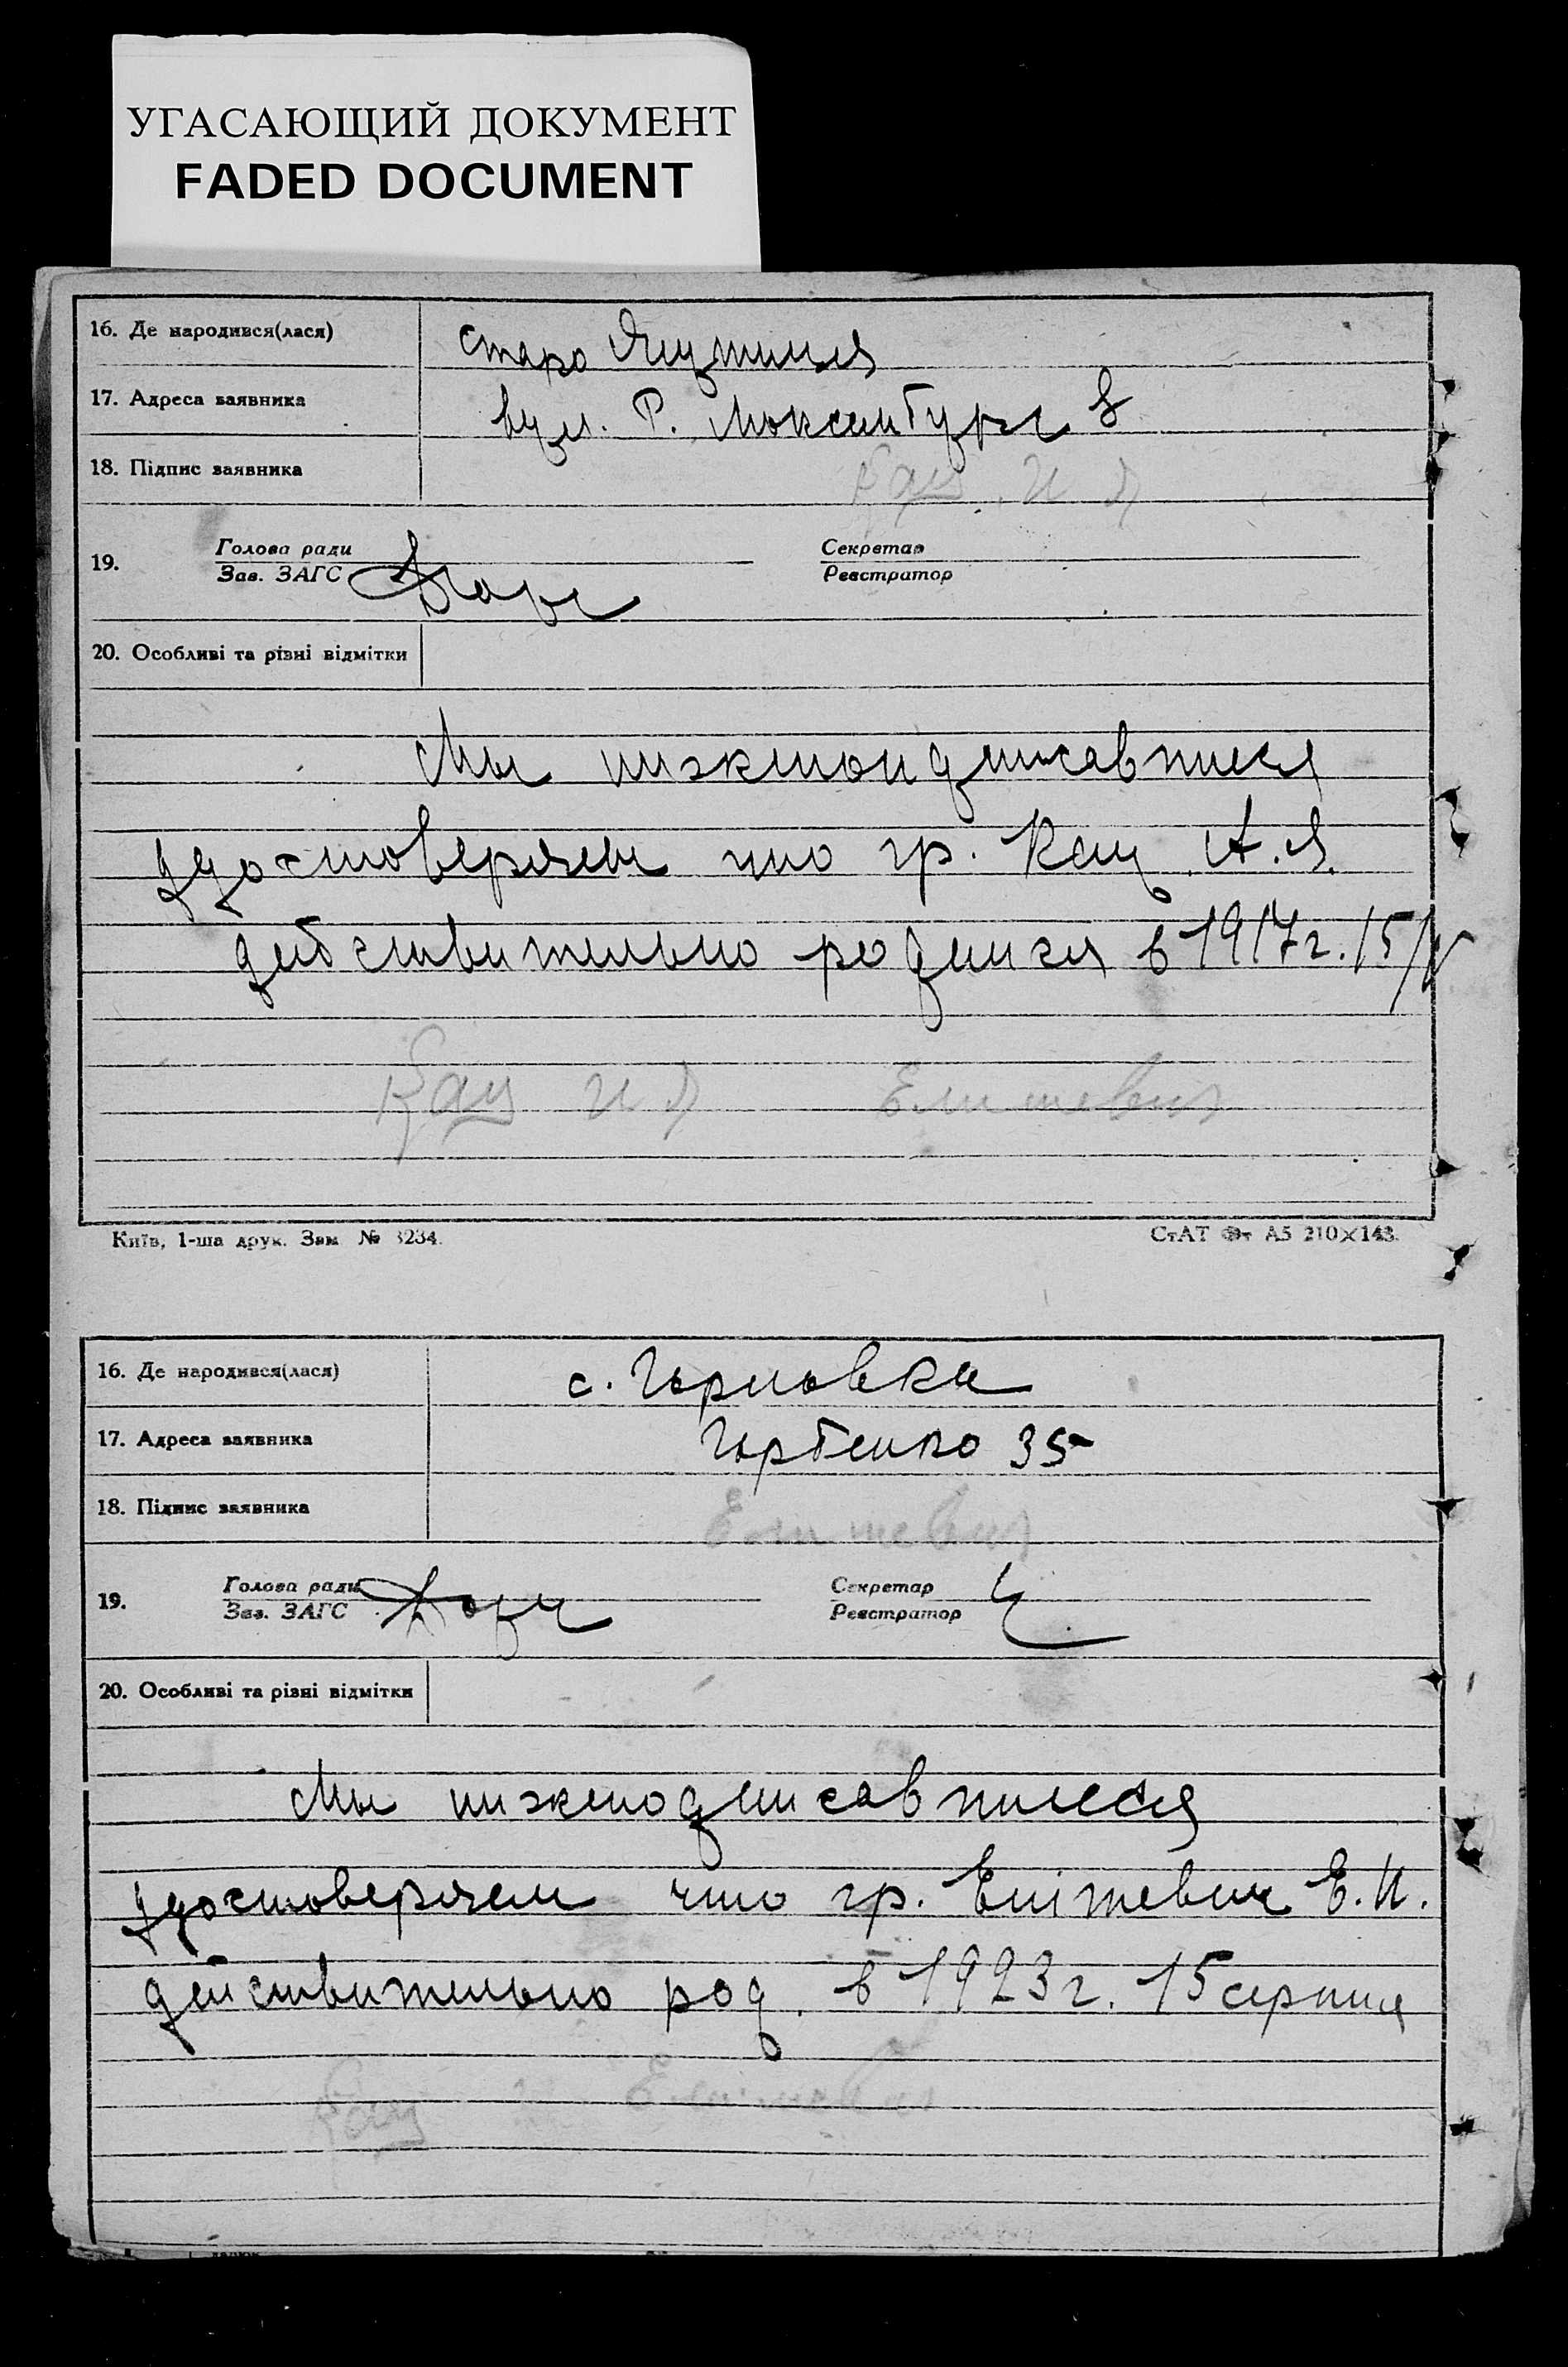 УГАСАЮЩИЙ ДОКУМЕНТ
FADED DOCUMENT
16. Де народився(лася) старо
17. Адреса заявника вул. Р. Люксембург 8
18. Підпис заявника Кац И Я
19. Голова ради Секретар
Зав. ЗАГС Реєстратор
20. Особливі та різні відмітки
Мы нижеподписавшиеся
удостоверяем что гр. Кац А.Я.
действительно родился в 1917 г. 15/
Кац И Я Елишевич
Київ, 1-ша друк. Зам № 3234.
СтАТ Фт А5 210×143.
16. Де народився(лася) с. Горловка
17. Адреса заявника Горбенко 35
18. Підпис заявника Елишевич
19. Голова ради Секретар
Зав. ЗАГС Реєстратор
20. Особливі та різні відмітки
Мы нижеподписавшиеся
удостоверяем что гр. Е.И.
действительно род. в 1923 г. 15 серпня
Кац